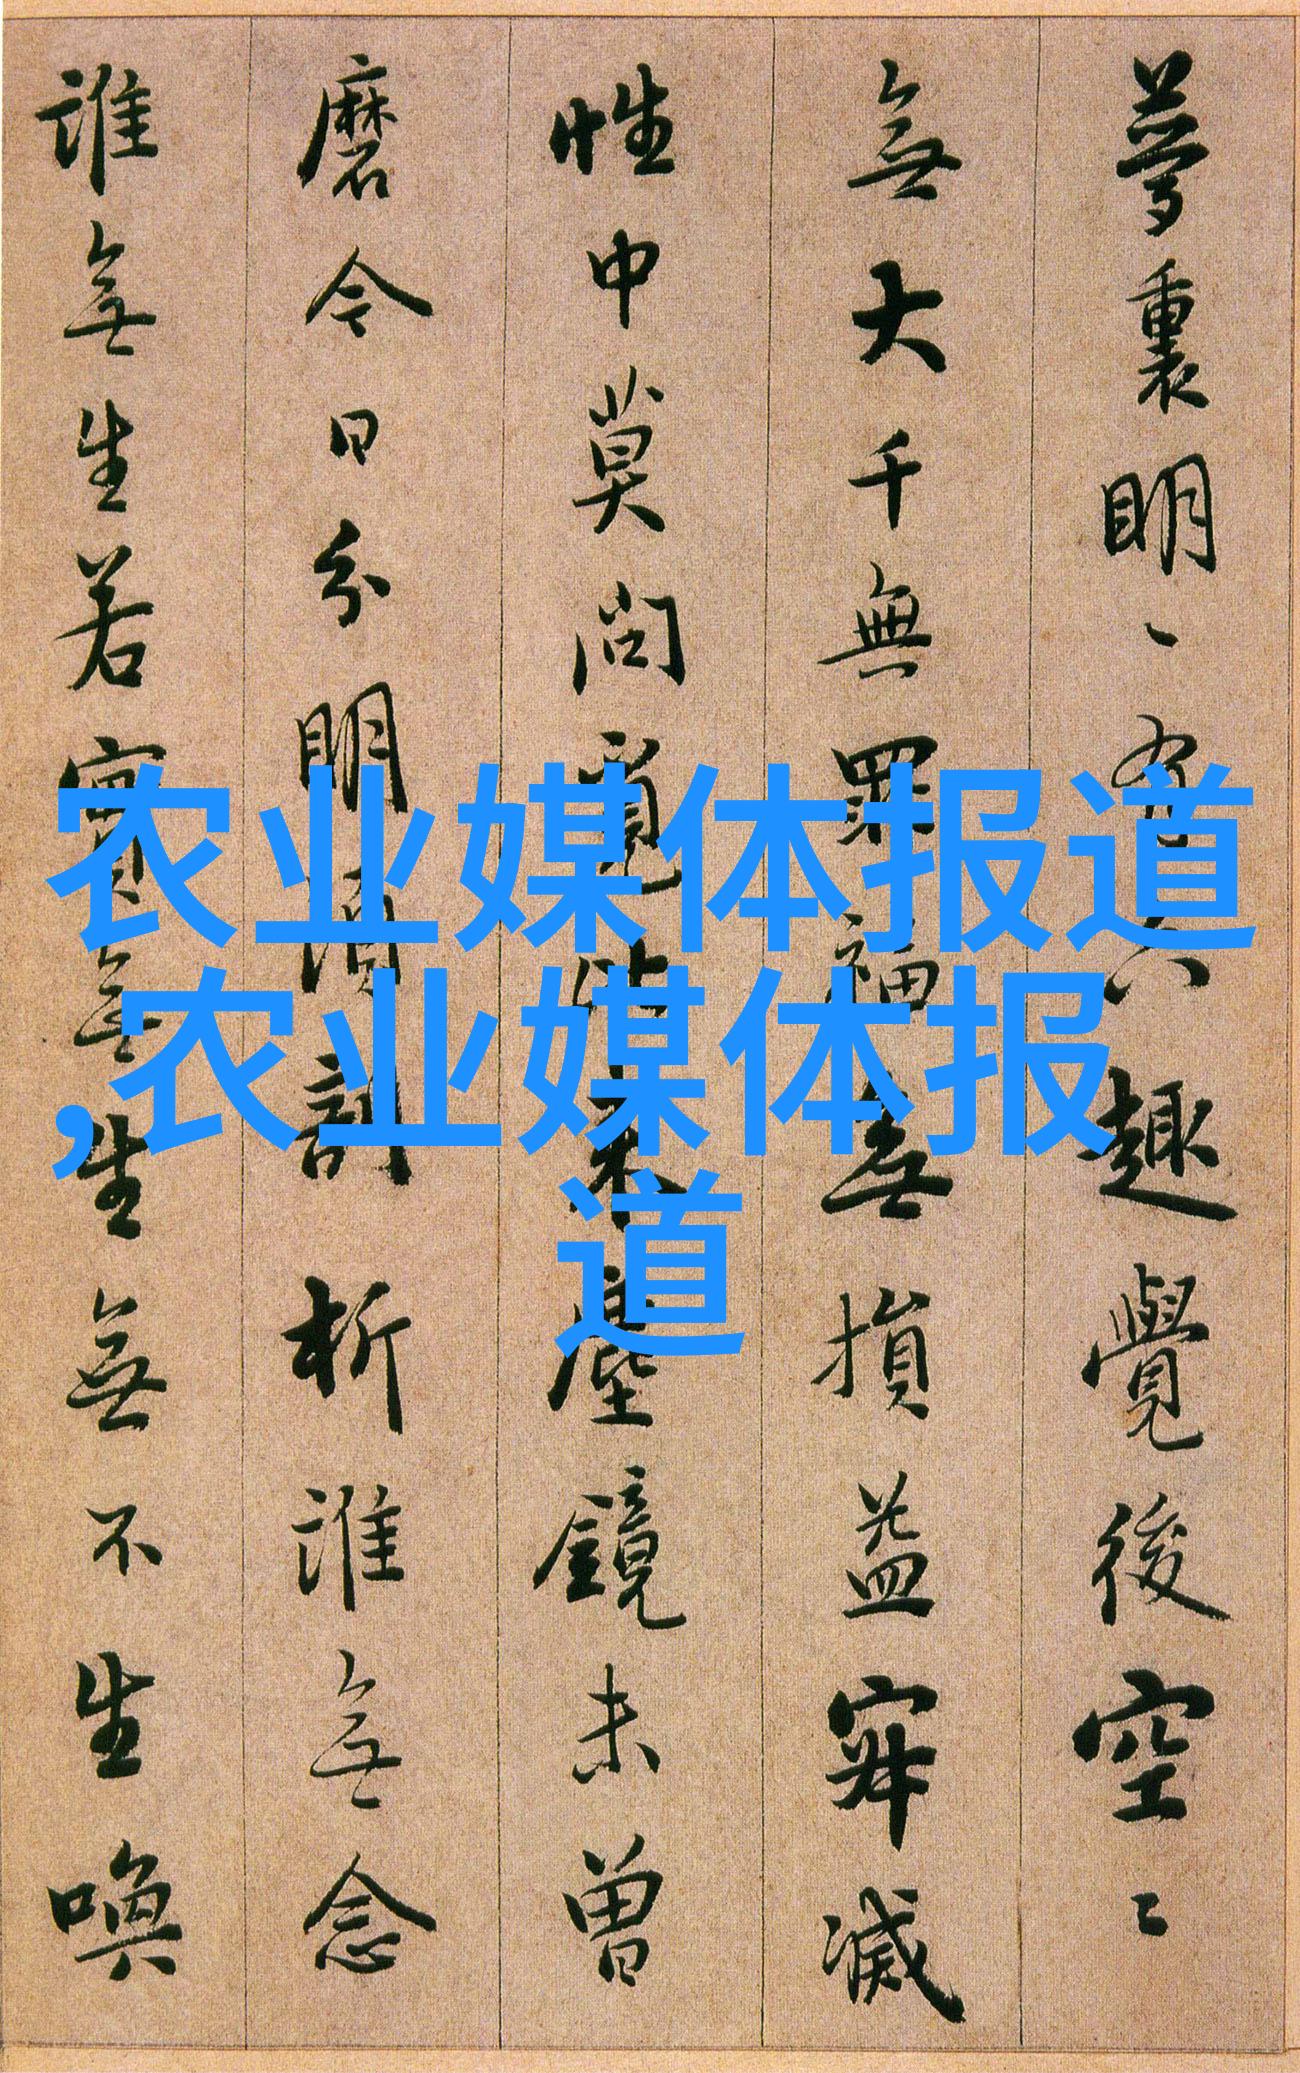 夢裏明丶有六趣覺後空〻
無大千無罪福無損益寂滅
性中莫問覓比來塵鏡未曾
磨今日分明須剖析誰無念
誰無生若實無生無不生喚
农业媒体报道
,农业媒体报
道